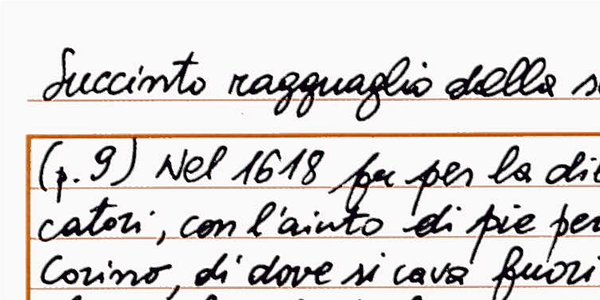 Succinto ragguaglio della s
(p. 9) Nel 1618 fu per la di
catori, con l'aiuto di pie per
Corino, di dove si cava fuori